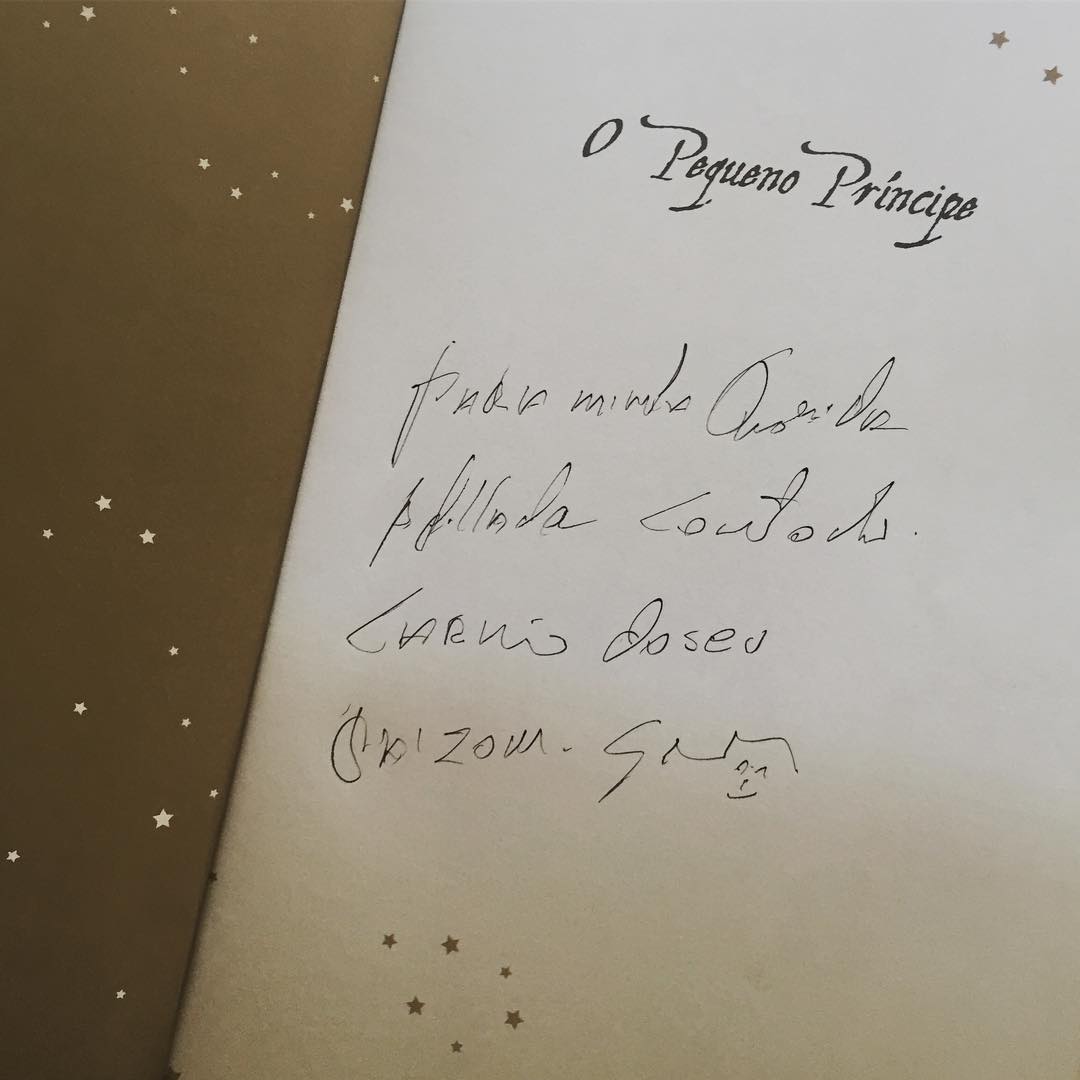 O Pequeno Príncipe
Para minha Querida
Afilhada com todo
carinho do seu
Paizom.